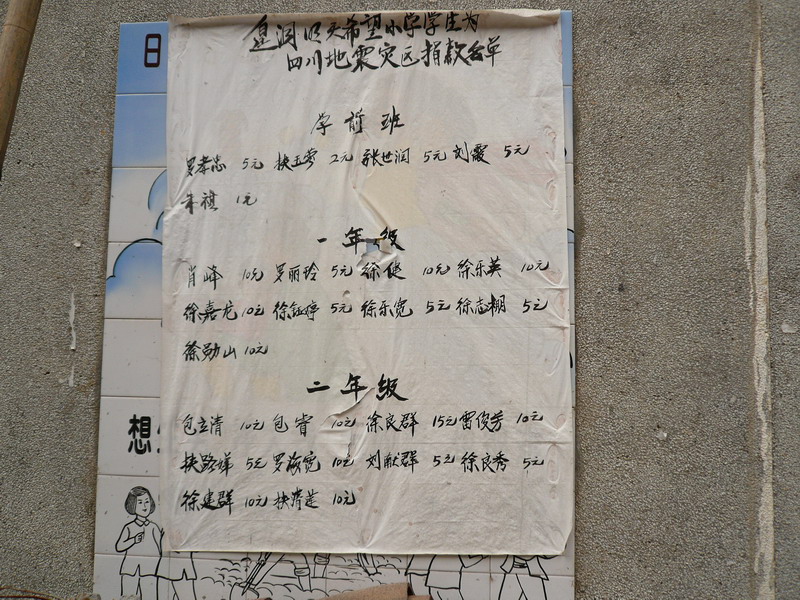 星润明天希望小学学生为
四川地震灾区捐款名单
学前班
罗孝忠 5元 扶玉莺 2元 张世润 5元 刘霞 5元
朱祺 1元
一年级
肖峰 10元 罗丽玲 5元 徐健 10元 徐乐英 10元
徐嘉龙 10元 徐钰婷 5元 徐乐宽 5元 徐志棚 5元
徐勋山 10元
二年级
包立清 10元 包睿 10元 徐良群 15元 雷俊芳 10元
扶路娣 5元 罗海宽 10元 刘献群 5元 徐良秀 5元
徐建群 10元 扶清莲 10元
日
想